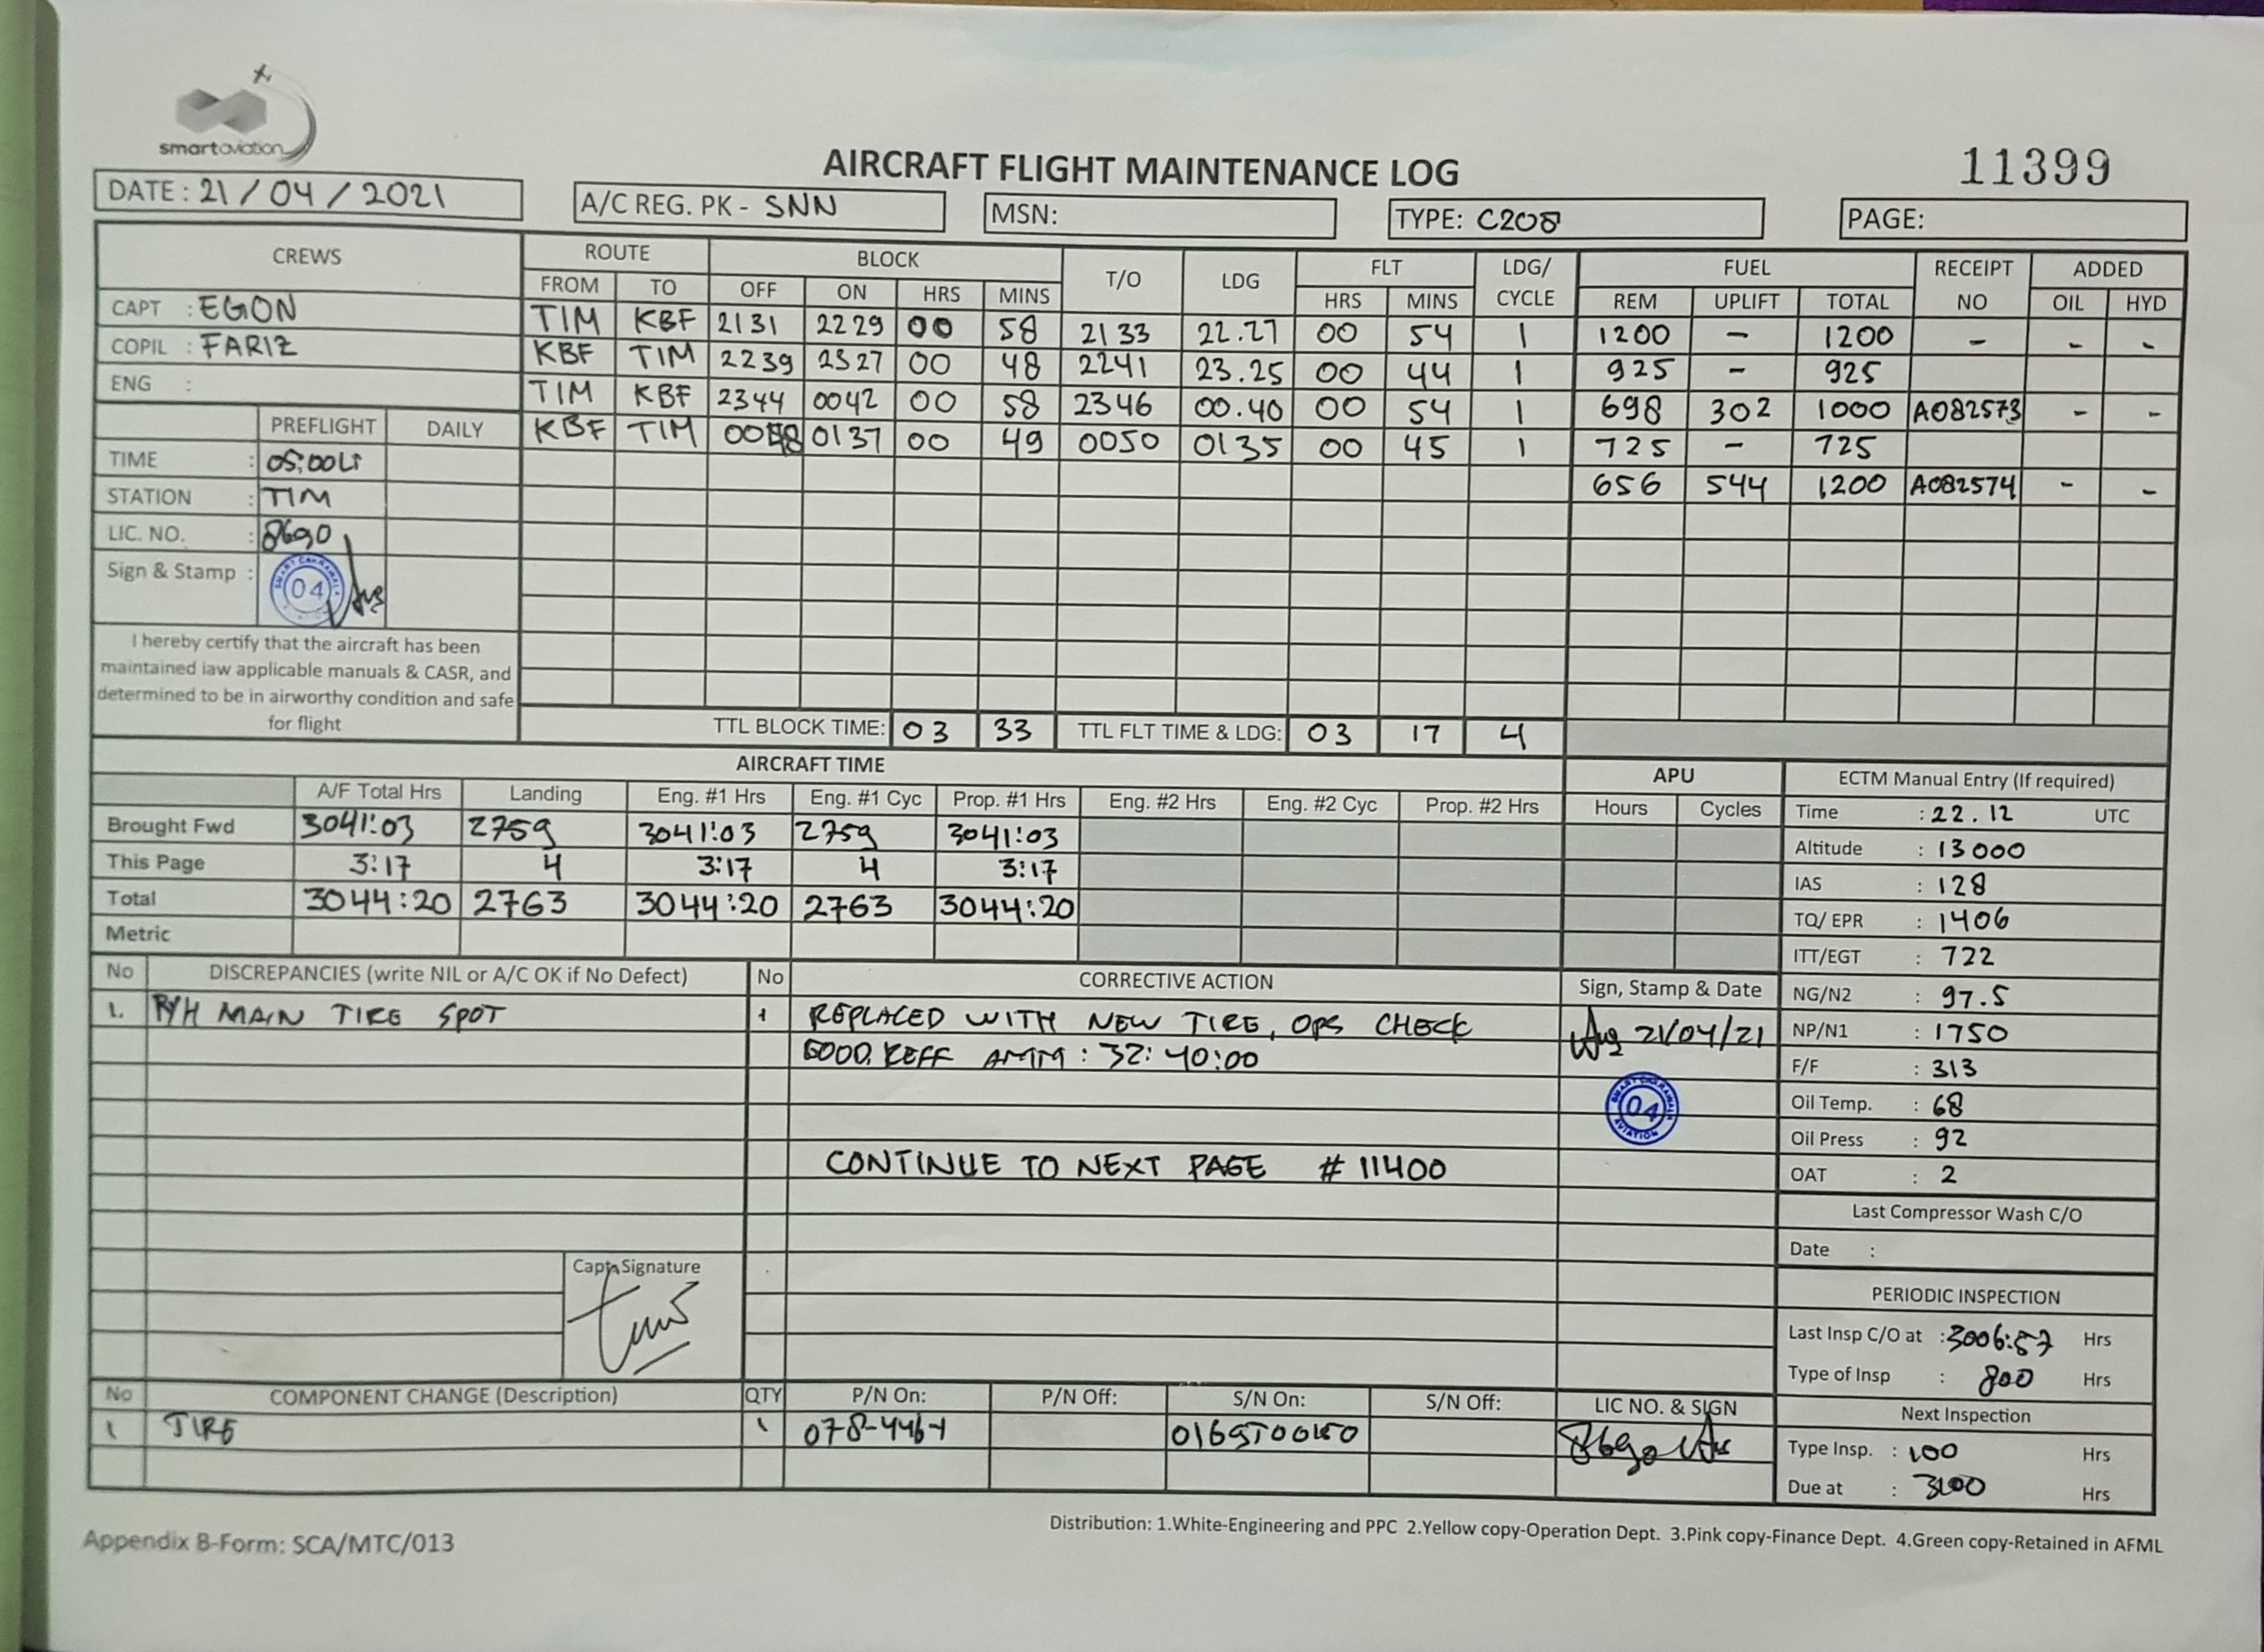 smartaviation
AIRCRAFT FLIGHT MAINTENANCE LOG
11399
DATE : 21 / 04 / 2021
A/C REG. PK - SNN
MSN:
TYPE: C208
PAGE:
CREWS ROUTE BLOCK T/O LDG FLT LDG/ CYCLE FUEL RECEIPT NO ADDED
FROM TO OFF ON HRS MINS HRS MINS REM UPLIFT TOTAL OIL HYD
CAPT : EGON
COPIL : FARIZ
ENG :
TIM KBF 2131 2229 00 58 2133 22.27 00 54 1 1200 - 1200 - - -
KBF TIM 2239 2327 00 48 2241 23.25 00 44 1 925 - 925
TIM KBF 2344 0042 00 58 2346 00.40 00 54 1 698 302 1000 A082573 - -
KBF TIM 0137 00 49 0050 0135 00 45 1 725 - 725
656 544 1200 A082574 - -
PREFLIGHT DAILY
TIME : 05:00
STATION : TIM
LIC. NO. : 8690
Sign & Stamp :
04
I hereby certify that the aircraft has been
maintained iaw applicable manuals & CASR, and
determined to be in airworthy condition and safe
for flight
TTL BLOCK TIME: 03 33 TTL FLT TIME & LDG: 03 17 4
AIRCRAFT TIME
A/F Total Hrs Landing Eng. #1 Hrs Eng. #1 Cyc Prop. #1 Hrs Eng. #2 Hrs Eng. #2 Cyc Prop. #2 Hrs
Brought Fwd 3041:03 2759 3041:03 2759 3041:03
This Page 3:17 4 3:17 4 3:17
Total 3044:20 2763 3044:20 2763 3044:20
Metric
APU
Hours Cycles
ECTM Manual Entry (If required)
Time : 22.12 UTC
Altitude : 13000
IAS : 128
TQ/ EPR : 1406
ITT/EGT : 722
NG/N2 : 97.5
NP/N1 : 1750
F/F : 313
Oil Temp. : 68
Oil Press : 92
OAT : 2
Last Compressor Wash C/O
Date :
PERIODIC INSPECTION
Last Insp C/O at : 3006:57 Hrs
Type of Insp : 800 Hrs
Next Inspection
Type Insp. : 100 Hrs
Due at : 3100 Hrs
No DISCREPANCIES (write NIL or A/C OK if No Defect) No CORRECTIVE ACTION Sign, Stamp & Date
1. R/H MAIN TIRE SPOT
1 REPLACED WITH NEW TIRE, OPS CHECK
GOOD. REFF AMM : 32:40:00
21/04/21
04
AVIATION
CONTINUE TO NEXT PAGE # 11400
Capt Signature
No COMPONENT CHANGE (Description) QTY P/N On: P/N Off: S/N On: S/N Off: LIC NO. & SIGN
1 TIRE 1 8690
Appendix B-Form: SCA/MTC/013
Distribution: 1.White-Engineering and PPC 2.Yellow copy-Operation Dept. 3.Pink copy-Finance Dept. 4.Green copy-Retained in AFML